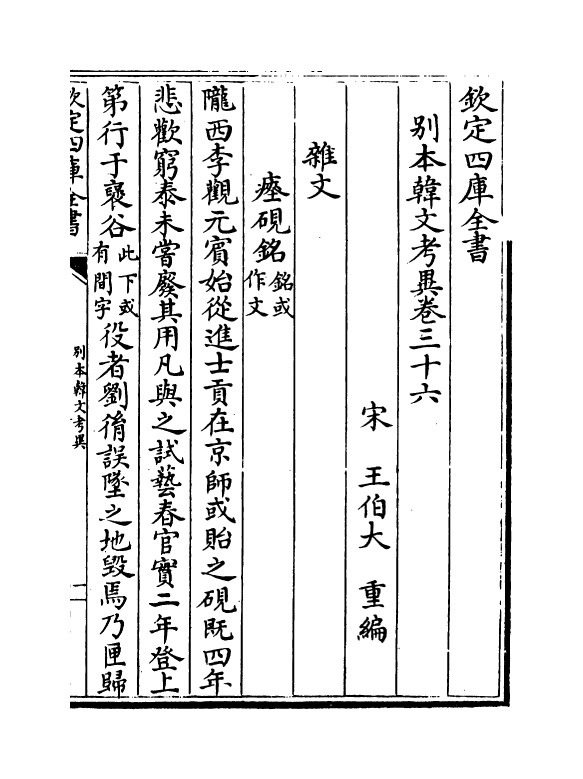 欽定四庫全書
別本韓文考異卷三十六
宋 王伯大 重編
雜文
瘞硯銘銘或作文
隴西李觀元賓始從進士貢在京師或貽之硯既四年
悲歡窮泰未嘗廢其用凡與之試藝春官實二年登上
第行于襃谷此下或有間字役者劉㣧誤墜之地毀焉乃匣歸
欽定四庫全書
別本韓文考異
一